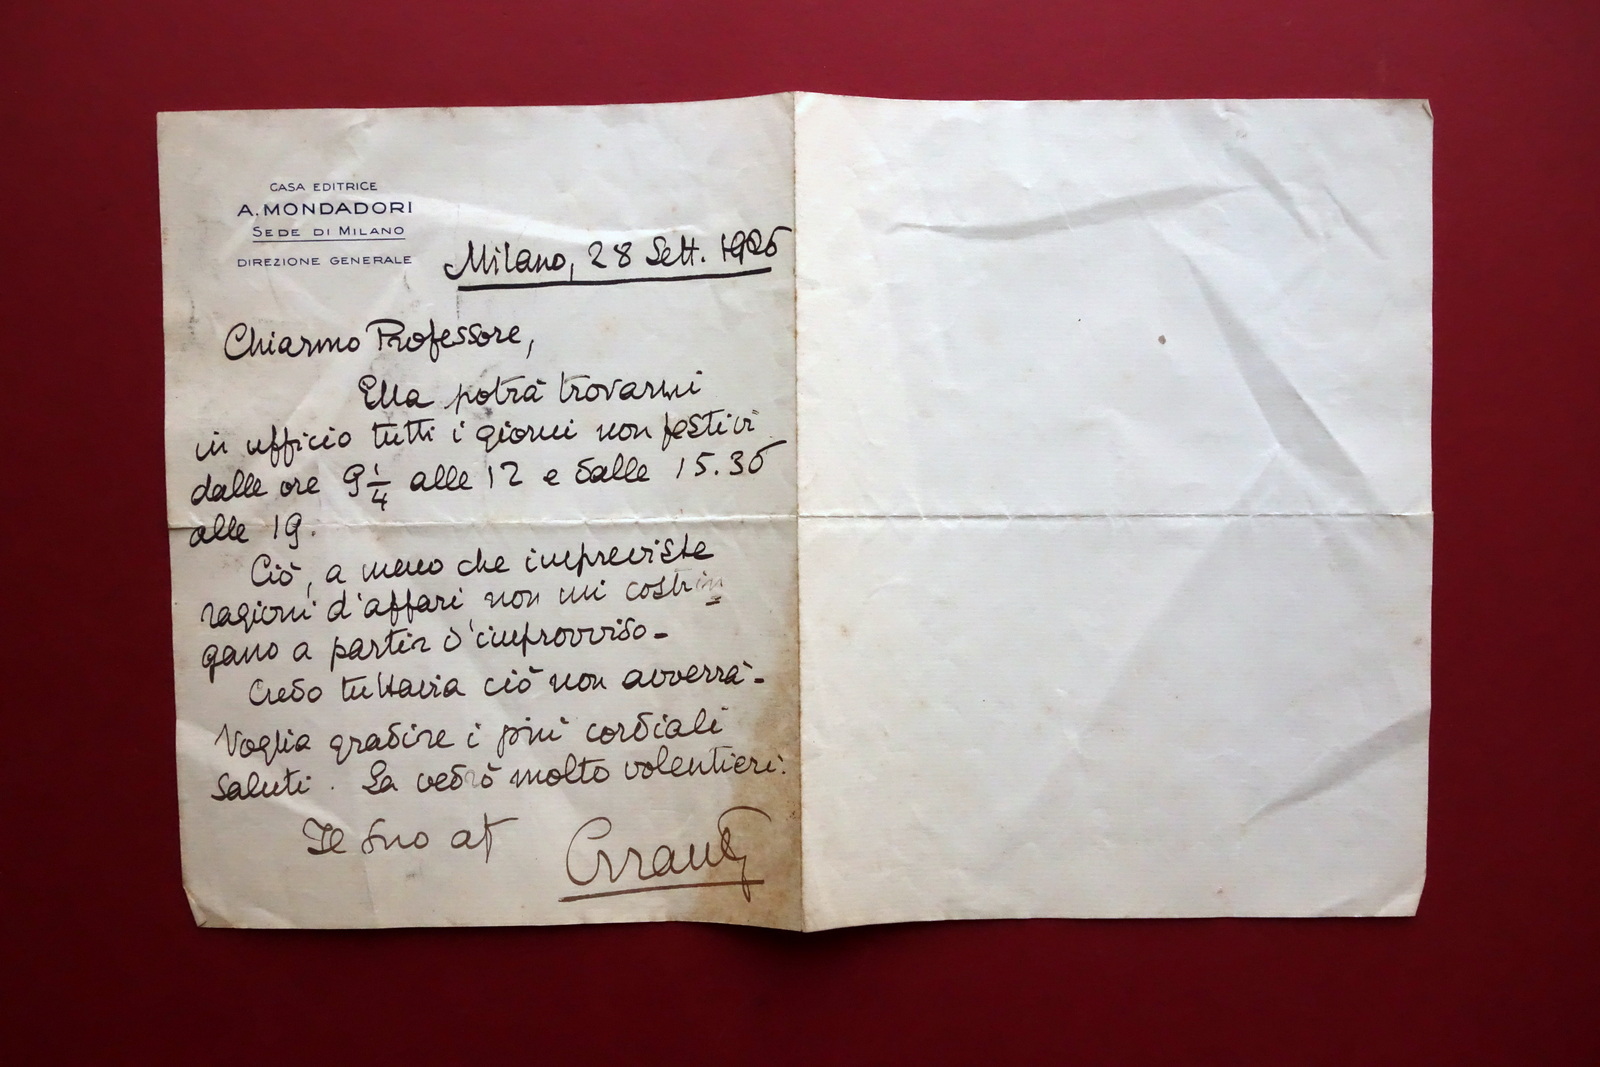 CASA EDITRICE
A. MONDADORI
SEDE DI MILANO
DIREZIONE GENERALE
Milano, 28 Sett. 1926
Chiarmo Professore,
Ella potrà trovarmi
in ufficio tutti i giorni non festivi
dalle ore 9 1/4 alle 12 e dalle 15.30
alle 19.
Ciò, a meno che impreviste
ragioni d'affari non mi costrin=
gano a partir d'improvviso-
Credo tuttavia ciò non avverrà-
Voglia gradire i più cordiali
saluti. La vedrò molto volentieri.
Il Suo af
Errante